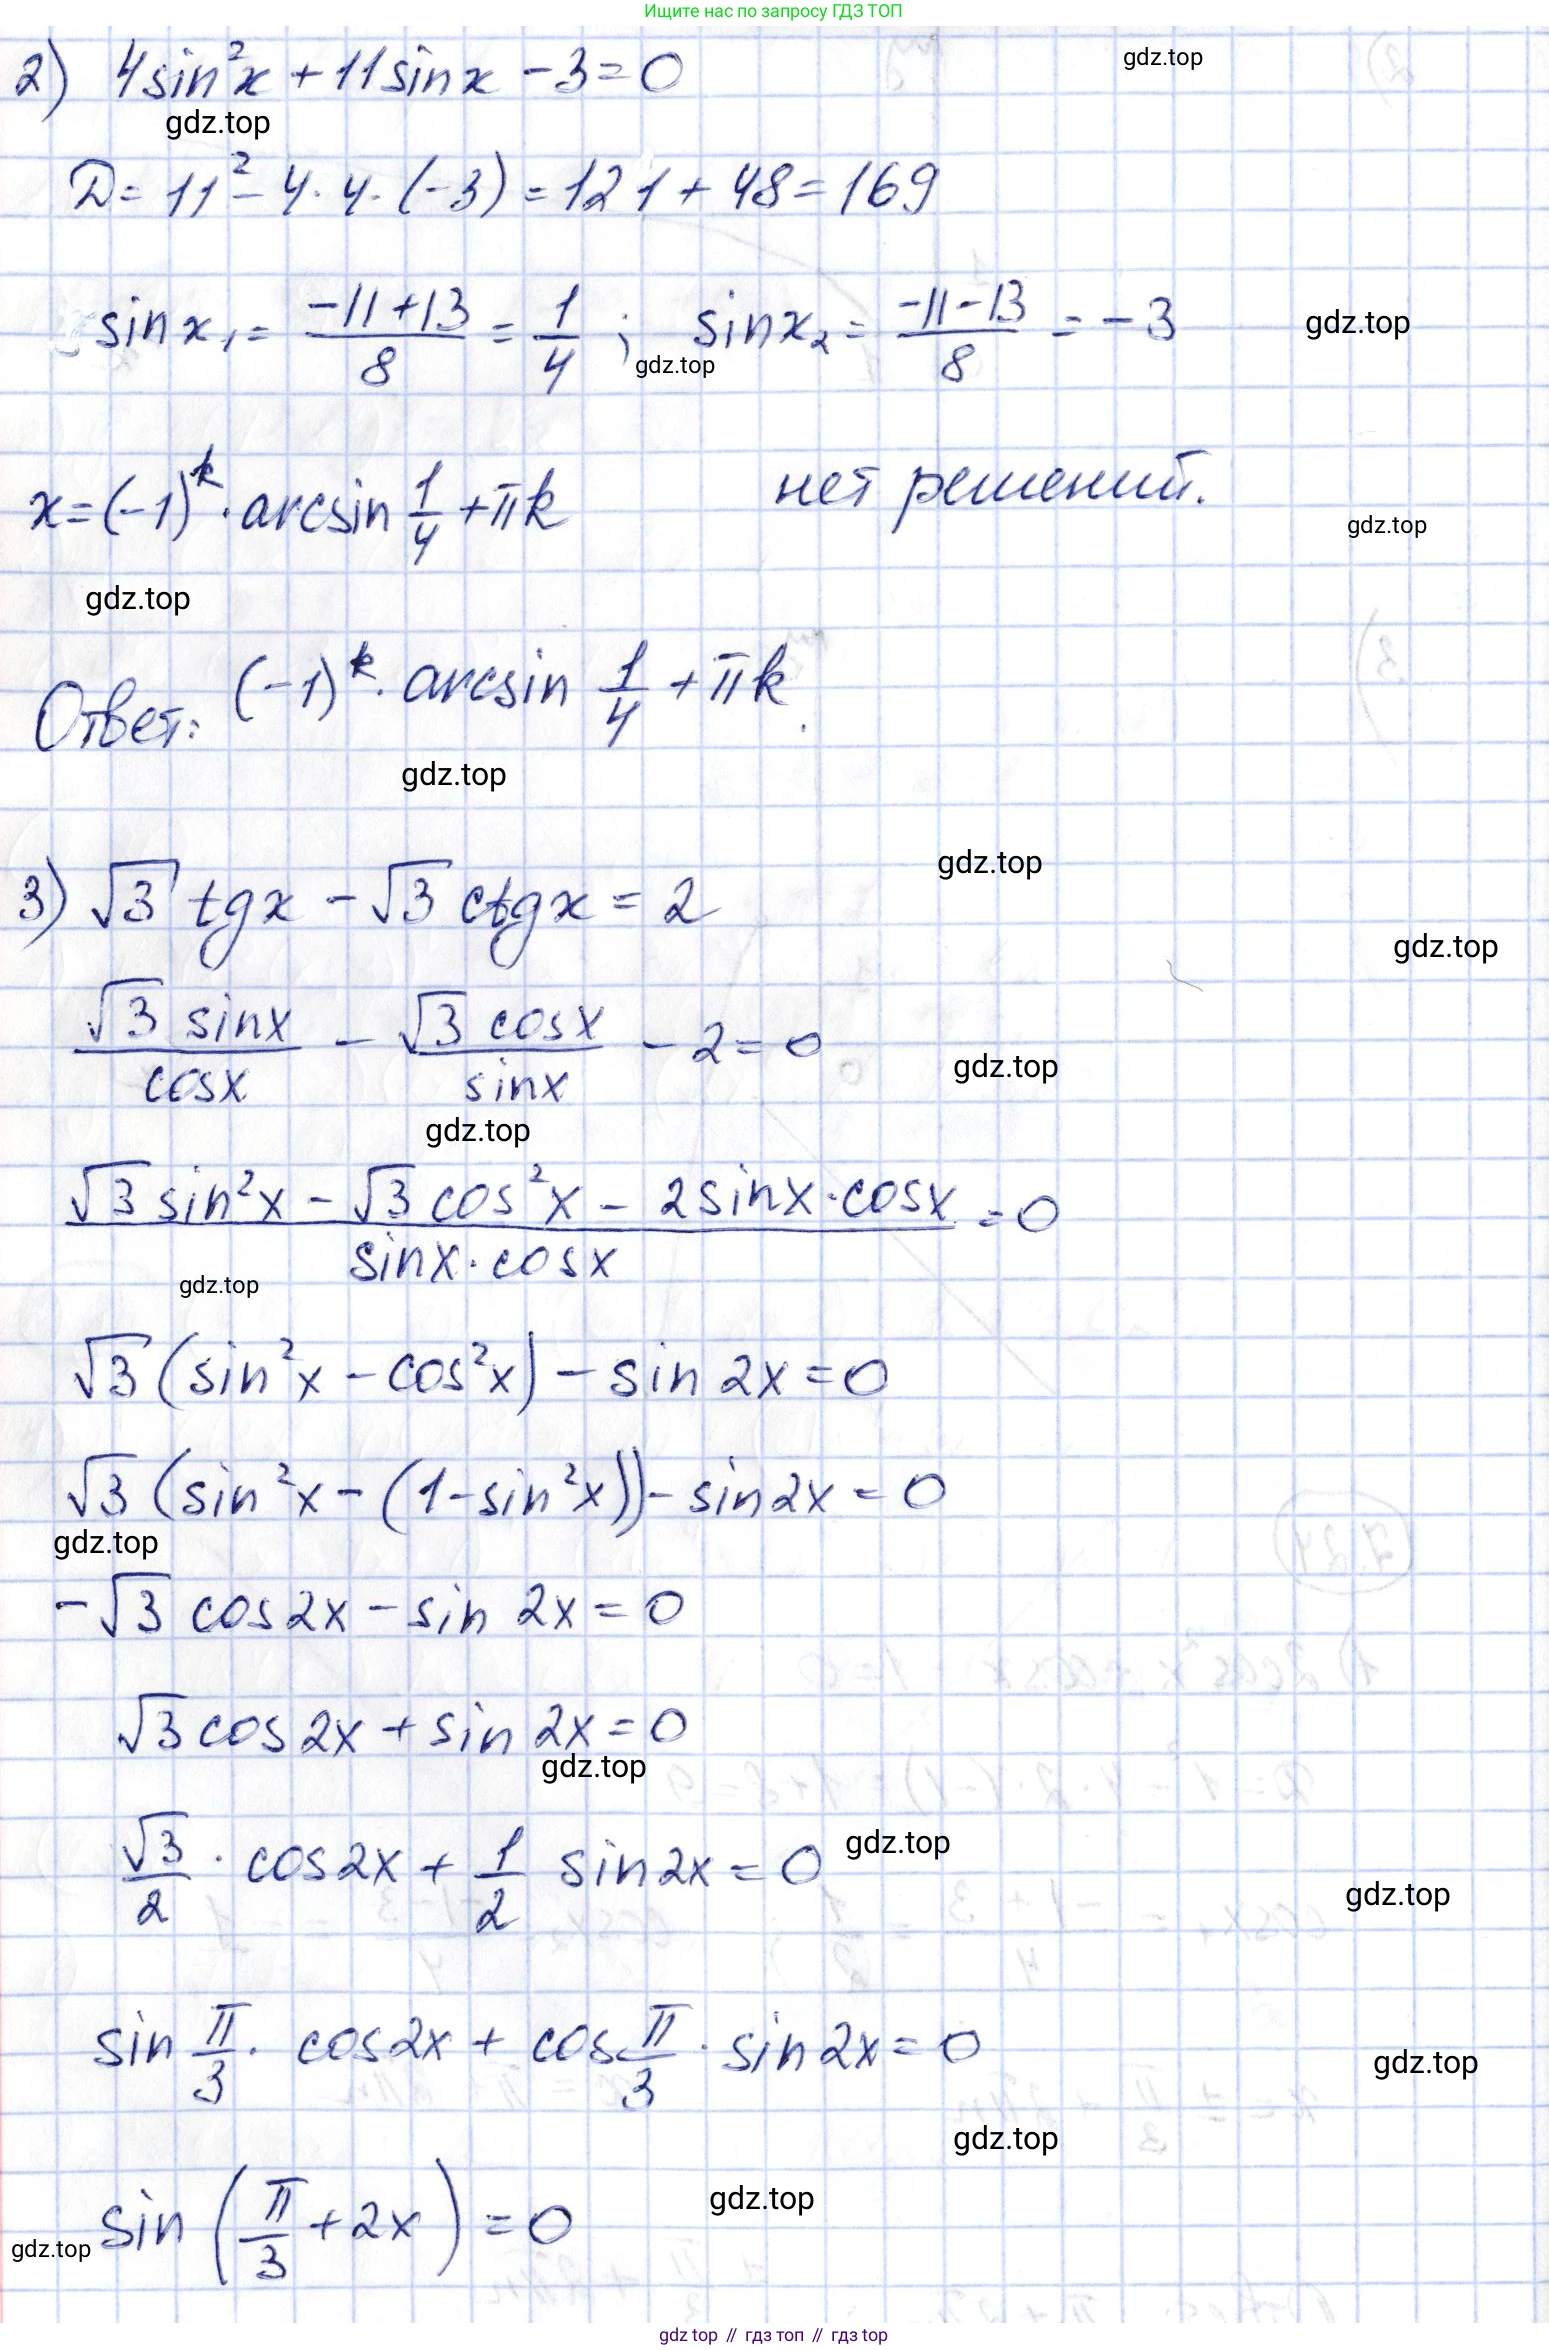 Ищите нас по запросу ГДЗ ТОП
2) 4sin²x + 11sinx - 3 = 0
gdz.top
gdz.top
D = 11² - 4·4·(-3) = 121 + 48 = 169
sinx₁ = (-11+13)/8 = 1/4 ; sinx₂ = (-11-13)/8 = -3
gdz.top
gdz.top
x = (-1)^k · arcsin 1/4 + πk нет решений.
gdz.top
gdz.top
Ответ: (-1)^k · arcsin 1/4 + πk.
gdz.top
gdz.top
3) √3 tgx - √3 ctgx = 2
gdz.top
√3 sinx/cosx - √3 cosx/sinx - 2 = 0
gdz.top
gdz.top
(√3 sin²x - √3 cos²x - 2sinx·cosx)/(sinx·cosx) = 0
gdz.top
√3 (sin²x - cos²x) - sin 2x = 0
√3 (sin²x - (1-sin²x)) - sin2x = 0
gdz.top
-√3 cos2x - sin 2x = 0
√3 cos2x + sin 2x = 0
gdz.top
√3/2 · cos2x + 1/2 sin2x = 0
gdz.top
gdz.top
sin π/3 · cos2x + cos π/3 · sin2x = 0
gdz.top
gdz.top
sin (π/3 + 2x) = 0
gdz.top
gdz.top
gdz top // гдз топ // гдз top